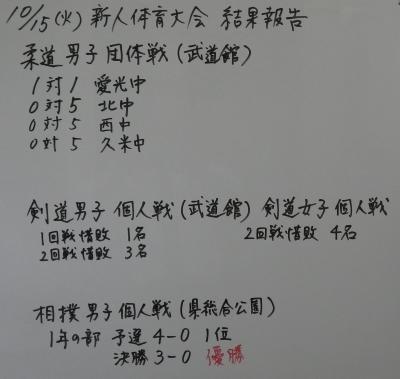 10/15(火) 新人体育大会 結果報告
柔道男子団体戦(武道館)
1対1 愛光中
0対5 北中
0対5 西中
0対5 久米中
剣道男子個人戦(武道館) 剣道女子個人戦
1回戦惜敗 1名 2回戦惜敗 4名
2回戦惜敗 3名
相撲男子個人戦(県総合公園)
1年の部 予選 4-0 1位
決勝 3-0 優勝